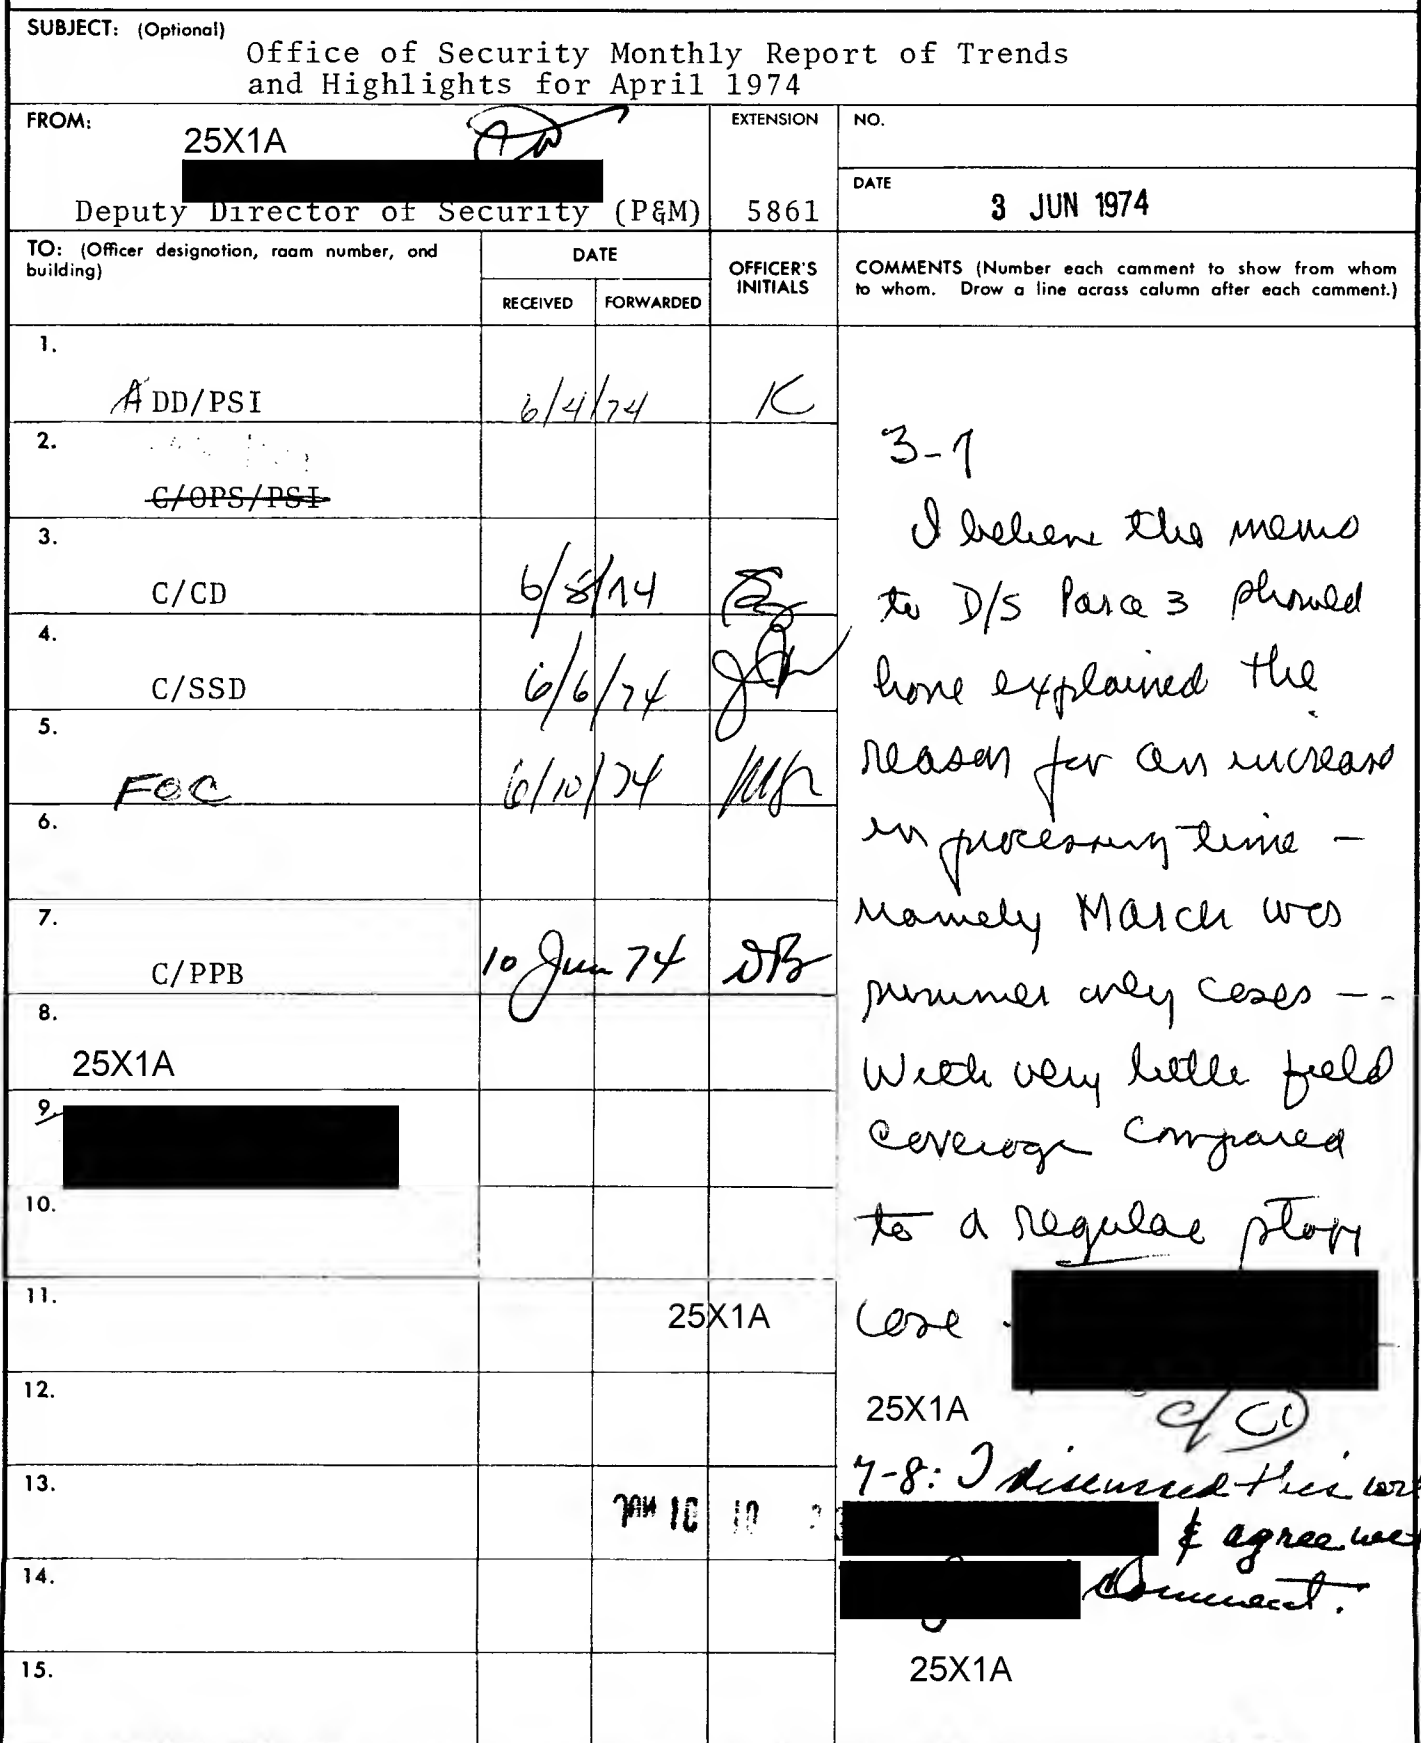 SUBJECT: (Optional)
Office of Security Monthly Report of Trends
and Highlights for April 1974
FROM:
25X1A
Deputy Director of Security (P&M)
EXTENSION
5861
NO.
DATE
3 JUN 1974
TO: (Officer designation, room number, and
building)
DATE
RECEIVED
FORWARDED
OFFICER'S
INITIALS
COMMENTS (Number each comment to show from whom
to whom. Draw a line across column after each comment.)
1.
ADD/PSI
6/4/74
K
2.
C/OPS/PSI
3.
C/CD
6/5/74
4.
C/SSD
6/6/74
5.
FOC
6/10/74
6.
7.
C/PPB
10 Jun 74
DB
8.
25X1A
9.
10.
11.
25X1A
12.
13.
14.
15.
3-7
I believe the memo
to D/S Para 3 should
have explained the
reason for an increase
in processing time -
namely March was
summer only cases --
With very little field
coverage compared
to a regular staff
case -
25X1A
C/CD
7-8: I discussed this
& agree
comment.
25X1A